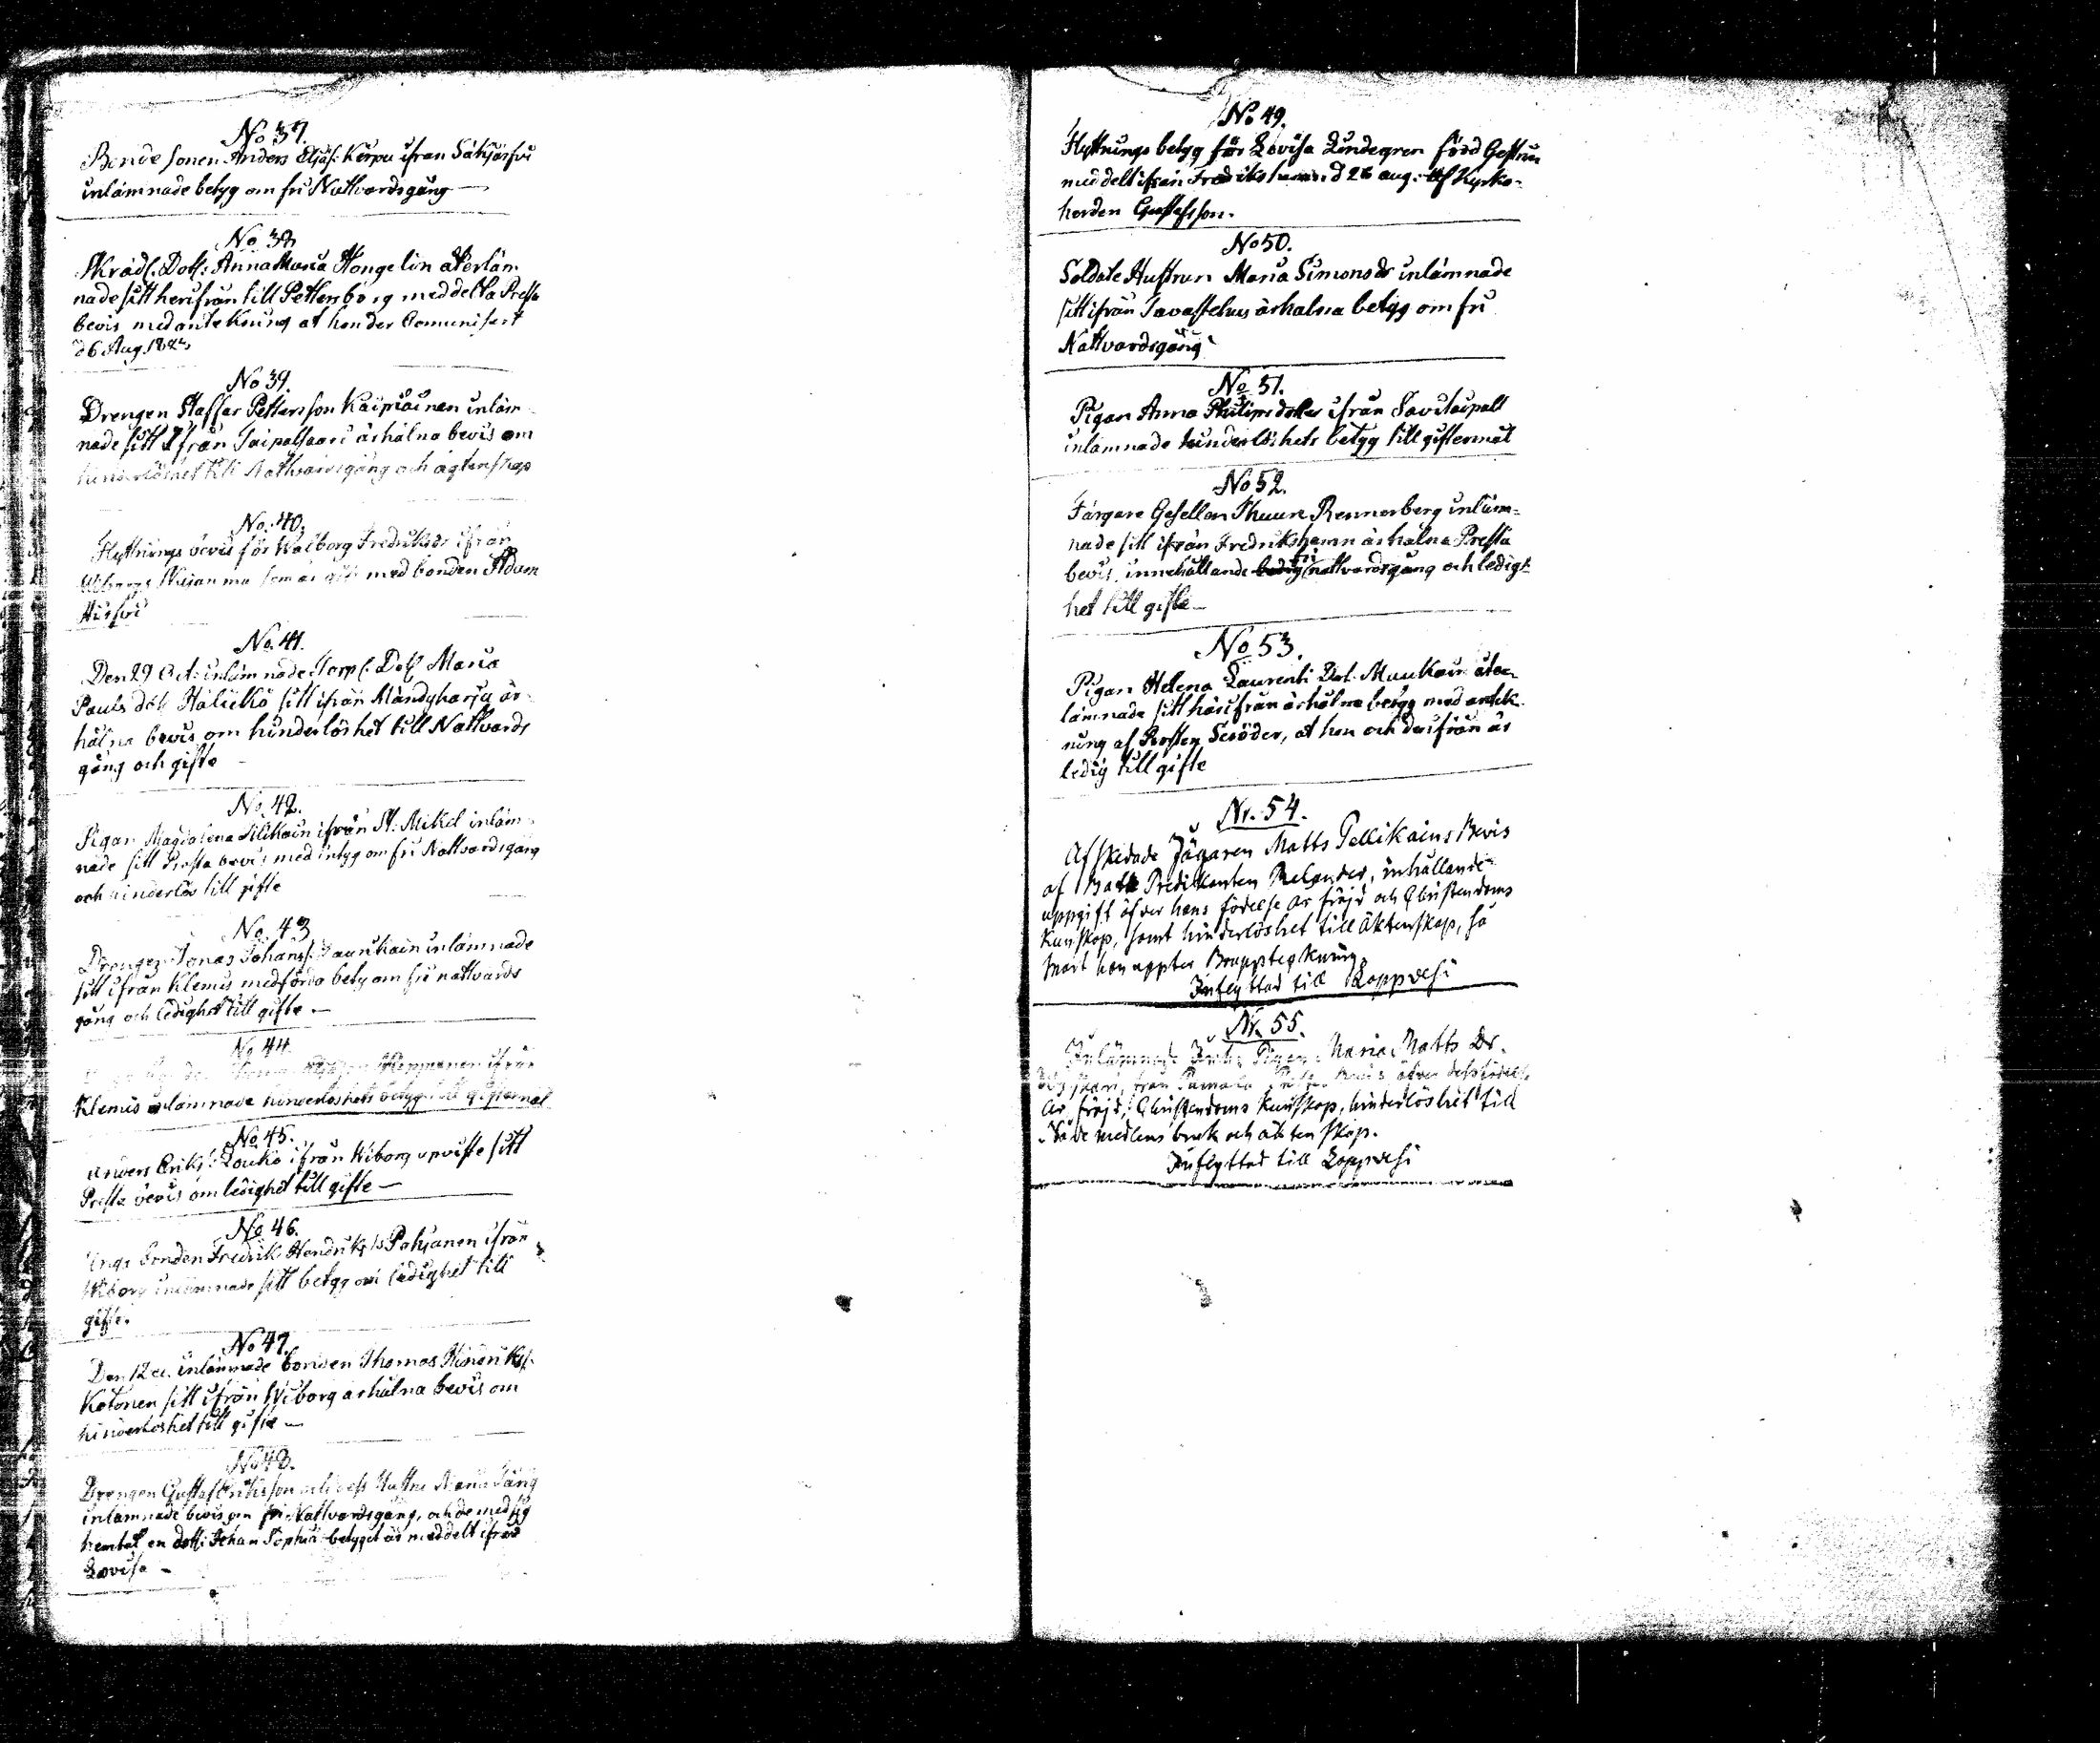 No 37.
Bonde sonen Anders Eljas: Kärpu ifrån Säkjärfvi
inlämnade betyg om fri Nattvardsgång —
No 38
Skräd: Dott: Anna Maria Hongelin återläm
nade sitt herifrån till Pettersborg meddelta Presta
bevis med antekning at hon der Comunisert
d 6 Aug. 182
No 39.
Drengen Staffar Pettersson Kaipiainen inläm
nade sitt ifrån Taipalsaari ärhålna bevis om
hinderlöshet till Nattvardsgång och ägtenskap
No. 40.
Flyttnings bevis för Walborg Fredriksdr ifrån
Wiborgs som är gift med bonden Adam
Hirfvi
No. 41.
Den 29 Oct: inlämnade Torp: Dott Maria
Pauls dott Halickö sitt ifrån Mändyharju är
hålna bevis om hinderlöshet till Nattvards
gång och gifte
No. 42.
Pigan Magdalena Silikain ifrån St: Mikel inläm
nade sitt Presta bevis med intyg om fri Nattvardsgång
och hinderlös till gifte
No. 43
Drengen Jonas Johans: Paunkain inlämnade
sitt ifrån Klemis medförda betyg om fri nattvards
gång och ledighet till gifte. —
No 44
ifrån
Klemis inlämnade hinderlöshets betyg till giftermål
No 45.
Anders Eriks: Louko ifrån Wiborg upviste sitt
Presta bevis om ledighet till gifte —
No 46.
Unga bonden Fredrik Hendriks: Pohjanen ifrån
Wiborg inlämnade sitt betyg om ledighet till
gifte.
No 47.
Den 12 inlämnade bonden Thomas Hinriks:
Ketonen sitt ifrån Wiborg ärhålna bevis om
hinderlöshet till gifte —
No 48.
Drengen Gustaf Eriksson och dess Hustru Maria Täng
inlämnade bevis om fri Nattvardsgång, och de med sig
hembat en dott: Johan Sophia betyget är meddelt ifrån
Lovisa —
No 49.
Flyttnings betyg för Lovisa Lindegren född Gestrin
meddelt ifrån Fredrikshamn. d 26 aug: af Kyrko-
herden Gustafsson.
No 50.
Soldate Hustrun Maria Simonsdr inlämnade
sitt ifrån Tavastehus ärhalna betyg om fri
Nattvardsgång
No 51.
Pigan Anna Philipsdotter ifrån Savitaipall
inlämnade hinderlöshets betyg till giftermål
No 52.
Färgare Gesellen Thuure Rennerberg inläm-
nade sitt ifrån Fredrikshamn ärhålna Presta
bevis, innehållande fri nattvardsgång och ledig-
het till gifte —
No 53.
Pigan Helena Laurenti Dot. Muukain åter-
lämnade sitt härifrån ärhålna betyg med antek-
ning af Prosten Seröder, at hon och derifrån är
ledig till gifte
Nr. 54.
Afskedade Jägaren Matts Pellikains Bevis
af Batt. Predikanten Relander, inhållande
uppgift öfver hans födelse år fräjd och Christendoms
Kunskap, samt hinderlöshet till äktenskap, så
snart han uppter
Inflyttad till Lappvesi
Nr. 55.
Inlämnade Inh: Pigan Maria Matts Dr.
från
år, fräjd, Christendoms Kunskap, hinderlöshet till
Nåde medlens bruk och äktenskap.
Inflyttad till Lappvesi